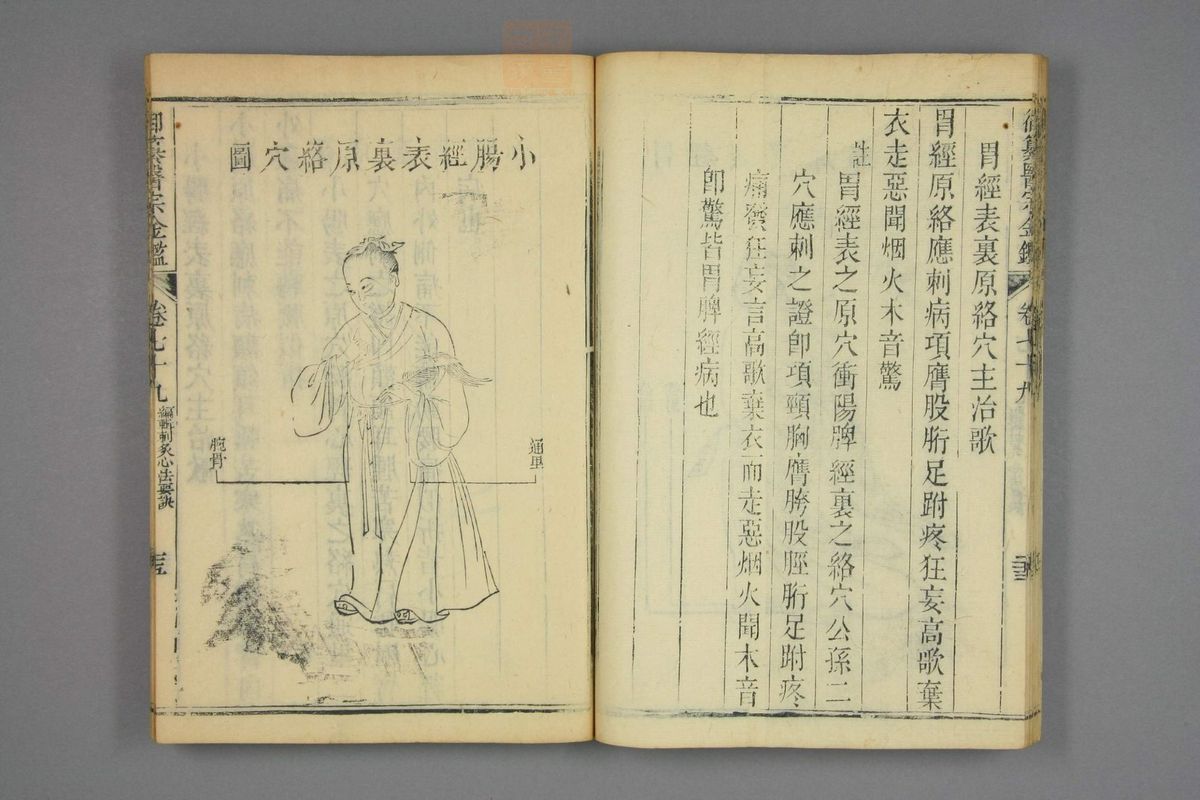 御纂醫宗金鑑 卷七十九
胃經表裏原絡穴主治歌
胃經原絡應刺病項膺股胻足跗疼狂妄高歌棄
衣走惡聞烟火木音驚
註
胃經表之原穴衝陽脾經裏之絡穴公孫二
穴應刺之證卽項頸胸膺胯股脛胻足跗疼
痛發狂妄言高歌棄衣而走惡烟火聞木音
卽驚皆胃脾經病也
小腸經表裏原絡穴圖
通里
腕骨
御纂醫宗金鑑 卷七十九 編輯刺灸心法要訣